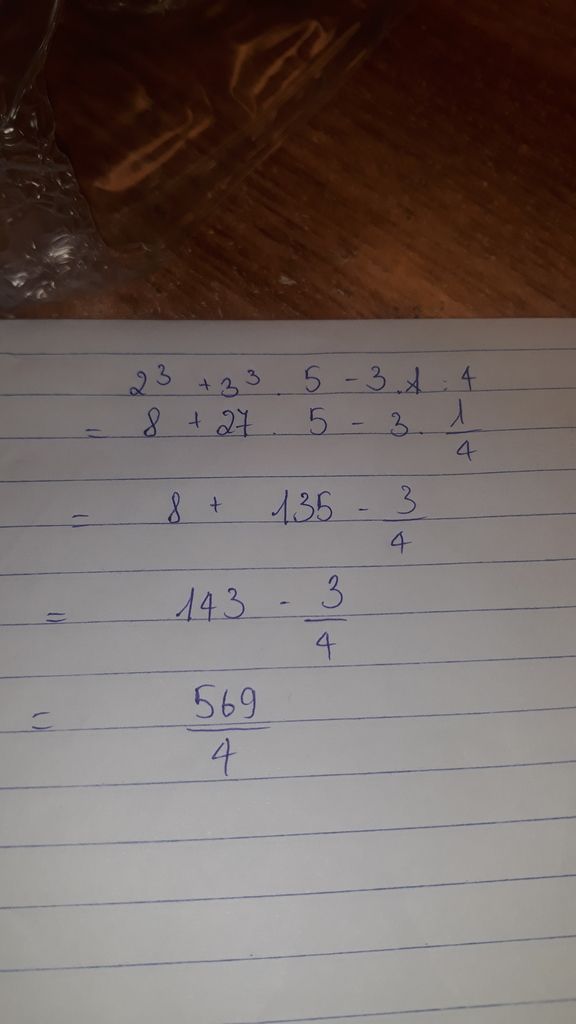 2³ + 3³ . 5 - 3 . 1 : 4
= 8 + 27 . 5 - 3 . 1/4
= 8 + 135 - 3/4
= 143 - 3/4
= 569/4